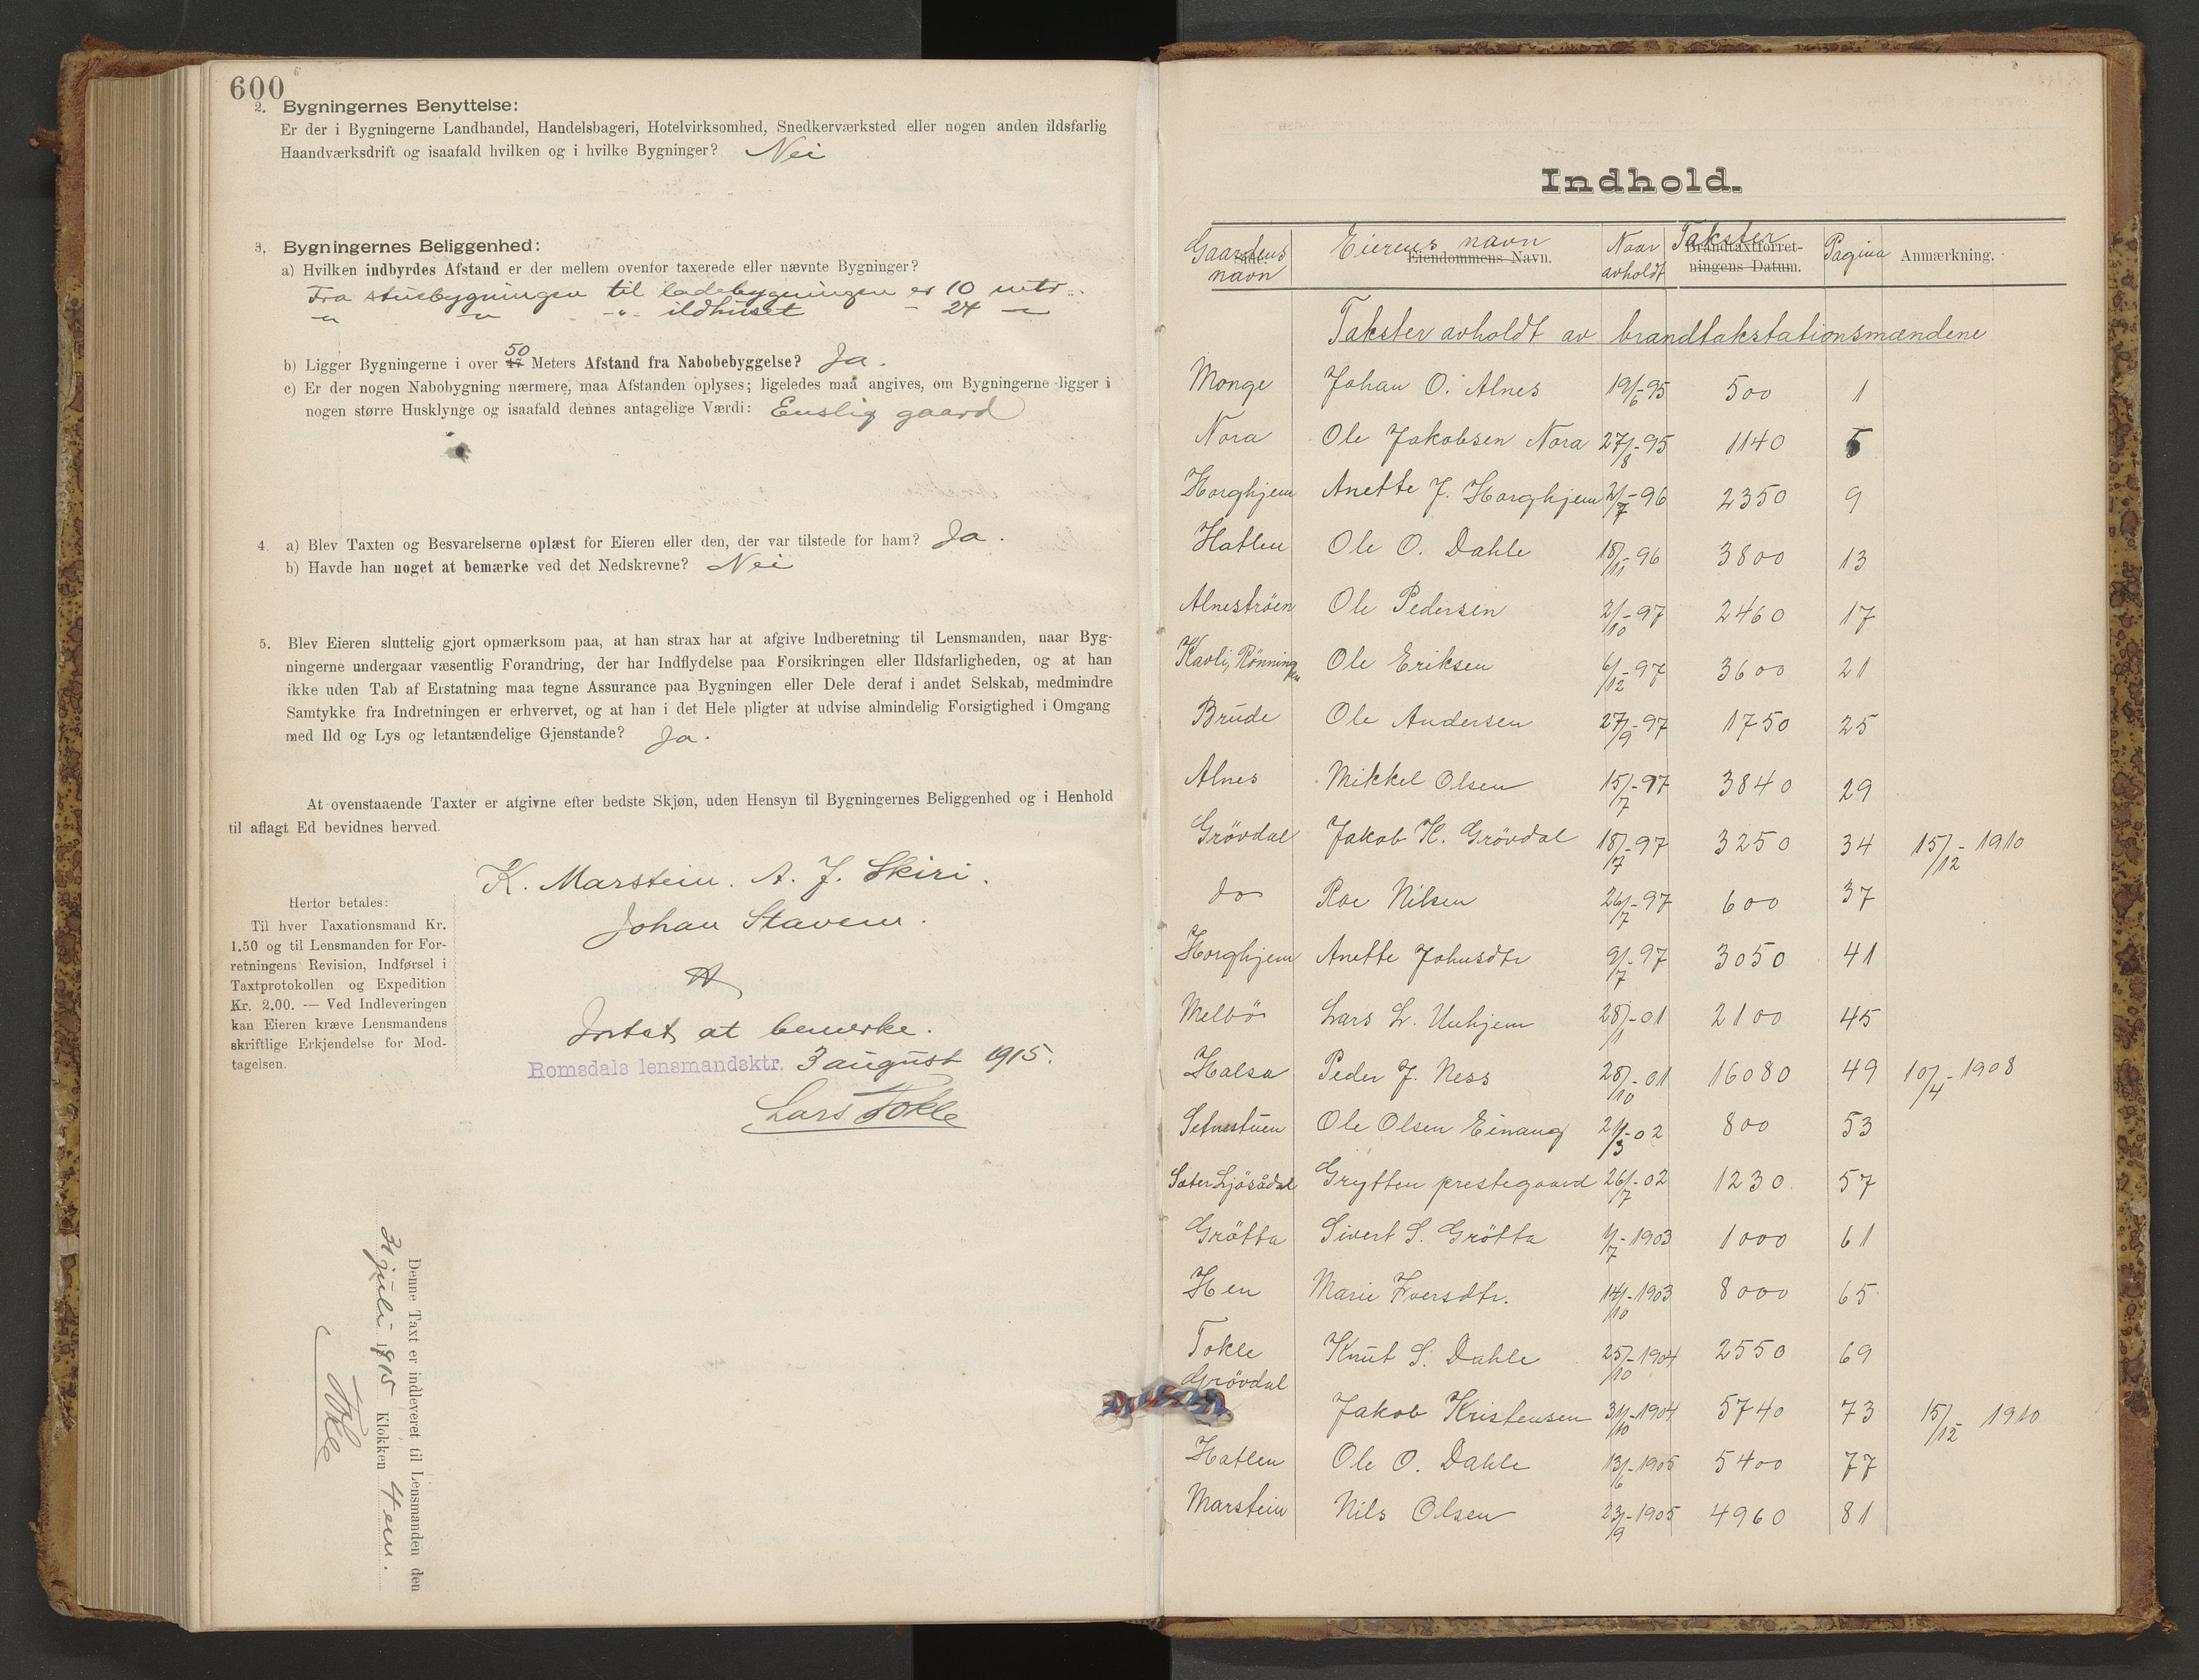 600
2. Bygningernes Benyttelse:
Er der i Bygningerne Landhandel, Handelsbageri, Hotelvirksomhed, Snedkerværksted eller nogen anden ildsfarlig
Haandværksdrift og isaafald hvilken og i hvilke Bygninger? Nei
3. Bygningernes Beliggenhed:
a) Hvilken indbyrdes Afstand er der mellem ovenfor taxerede eller nævnte Bygninger?
Fra stuebygningen til ladebygningen er 10 mtr.
" " -"- ildhuset - 24 -"-
b) Ligger Bygningerne i over 50 Meters Afstand fra Nabobebyggelse? Ja.
c) Er der nogen Nabobygning nærmere, maa Afstanden oplyses; ligeledes maa angives, om Bygningerne ligger i
nogen større Husklynge og isaafald dennes antagelige Værdi: Enslig gaard
4. a) Blev Taxten og Besvarelserne oplæst for Eieren eller den, der var tilstede for ham? Ja.
b) Havde han noget at bemærke ved det Nedskrevne? Nei
5. Blev Eieren sluttelig gjort opmærksom paa, at han strax har at afgive Indberetning til Lensmanden, naar Byg-
ningerne undergaar væsentlig Forandring, der har Indflydelse paa Forsikringen eller Ildsfarligheden, og at han
ikke uden Tab af Erstatning maa tegne Assurance paa Bygningen eller Dele deraf i andet Selskab, medmindre
Samtykke fra Indretningen er erhvervet, og at han i det Hele pligter at udvise almindelig Forsigtighed i Omgang
med Ild og Lys og letantændelige Gjenstande? Ja.
At ovenstaaende Taxter er afgivne efter bedste Skjøn, uden Hensyn til Bygningernes Beliggenhed og i Henhold
til aflagt Ed bevidnes herved.
K. Marstein. A. J. Skiri.
Johan Stavem.
Herfor betales:
Til hver Taxationsmand Kr.
1.50 og til Lensmanden for For-
retningens Revision, Indførsel i
Taxtprotokollen og Expedition
Kr. 2.00. — Ved Indleveringen
kan Eieren kræve Lensmandens
skriftlige Erkjendelse for Mod-
tagelsen.
Intet at bemerke.
Romsdals lensmandsktr. 3 august 1915.
Lars Tokle
Denne Taxt er indleveret til Lensmanden den
31 juli 1915 Klokken 4 em.
Tokle
Indhold.
Gaardens navn Eierens navn Eiendommens Navn. Naar avholdt Takster Brandtaxtforret-ningens Datum. Pagina Anmærkning.
Takster avholdt av brandtakstationsmændene
Monge Johan O. Alnes 19/6-95 500 1
Nora Ole Jakobsen Nora 27/8-95 1140 5
Horghjem Anette J. Horghjem 2/7-96 2350 9
Hatlen Ole O. Dahle 18/11-96 3800 13
Alneströen Ole Pedersen 2/10-97 2460 17
Kavli, Rönningen Ole Eriksen 6/12-97 3600 21
Brude Ole Andersen 27/9-97 1750 25
Alnes Mikkel Olsen 15/7-97 3840 29
Grövdal Jakob K. Grövdal 18/7-97 3250 34 15/12-1910
do Roe Nilsen 26/7-97 600 37
Horghjem Anette Johnsdtr 9/7-97 3050 41
Melbö Lars L. Unhjem 28/1-01 2100 45
Halsa Peder J. Ness 28/10-01 16080 49 10/4-1908
Setnestuen Ole Olsen Einang 21/3-02 800 53
Sæter Ljösådal Grytten prestegaard 26/7-02 1230 57
Grötta Sivert S. Grötta 1/7-1903 1000 61
Hen Marie Iversdtr. 14/10-1903 8000 65
Tokle Knut S. Dahle 25/10-1904 2550 69
Grövdal
Jakob Kristensen 31/10-1904 5740 73 15/12-1910
Hatlen Ole O. Dahle 13/6-1905 5400 77
Marstein Nils Olsen 23/9-1905 4960 81